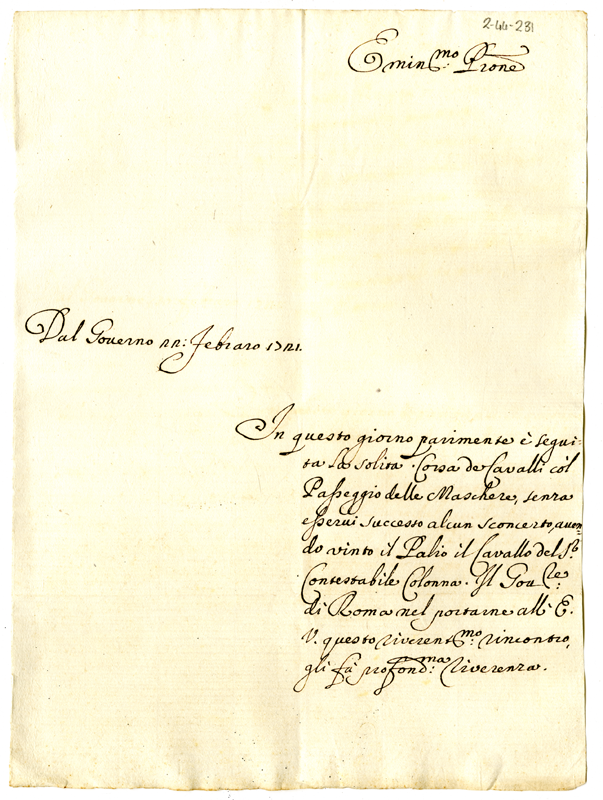 2-44-231
Emin.mo Prone
Dal Governo 22: Febraro 1721.
In questo giorno parimente è segui
ta la solita Corsa de Cavalli col
Passeggio delle Maschere, senza
esserui successo alcun sconcerto, auen
do vinto il Palio il Cavallo del S.r
Contestabile Colonna. Il Gou.re
di Roma nel portarne all' E.
V. questo riverent.mo rincontro,
gli fà profond.ma riverenza.